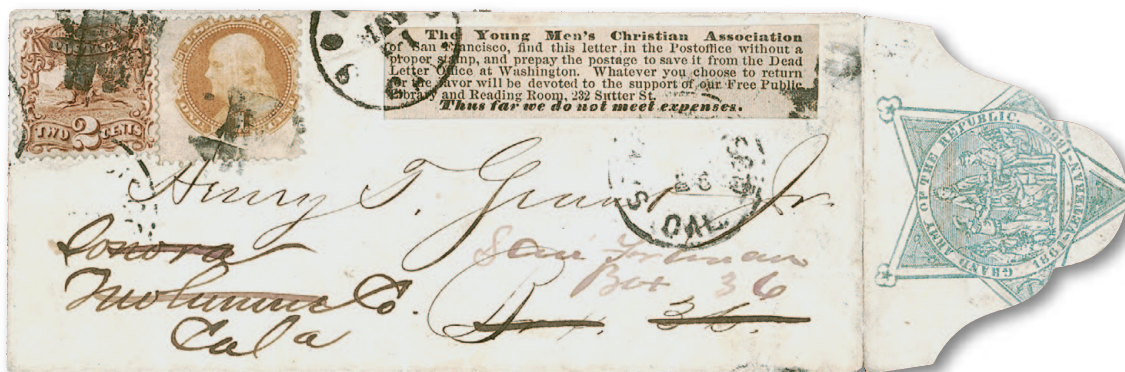 POSTAGE
TWO 2 CENTS
The Young Men's Christian Association
of San Francisco, find this letter, in the Postoffice without a
proper stamp, and prepay the postage to save it from the Dead
Letter Office at Washington. Whatever you choose to return
for the favor will be devoted to the support of our Free Public
Library and Reading Room, 232 Sutter St.
Thus far we do not meet expenses.
Henry T. Jr.
Sonora
Co.
Cala
Box 36
CAL
GRAND ARMY OF THE REPUBLIC.
1861-VETERAN-1866.